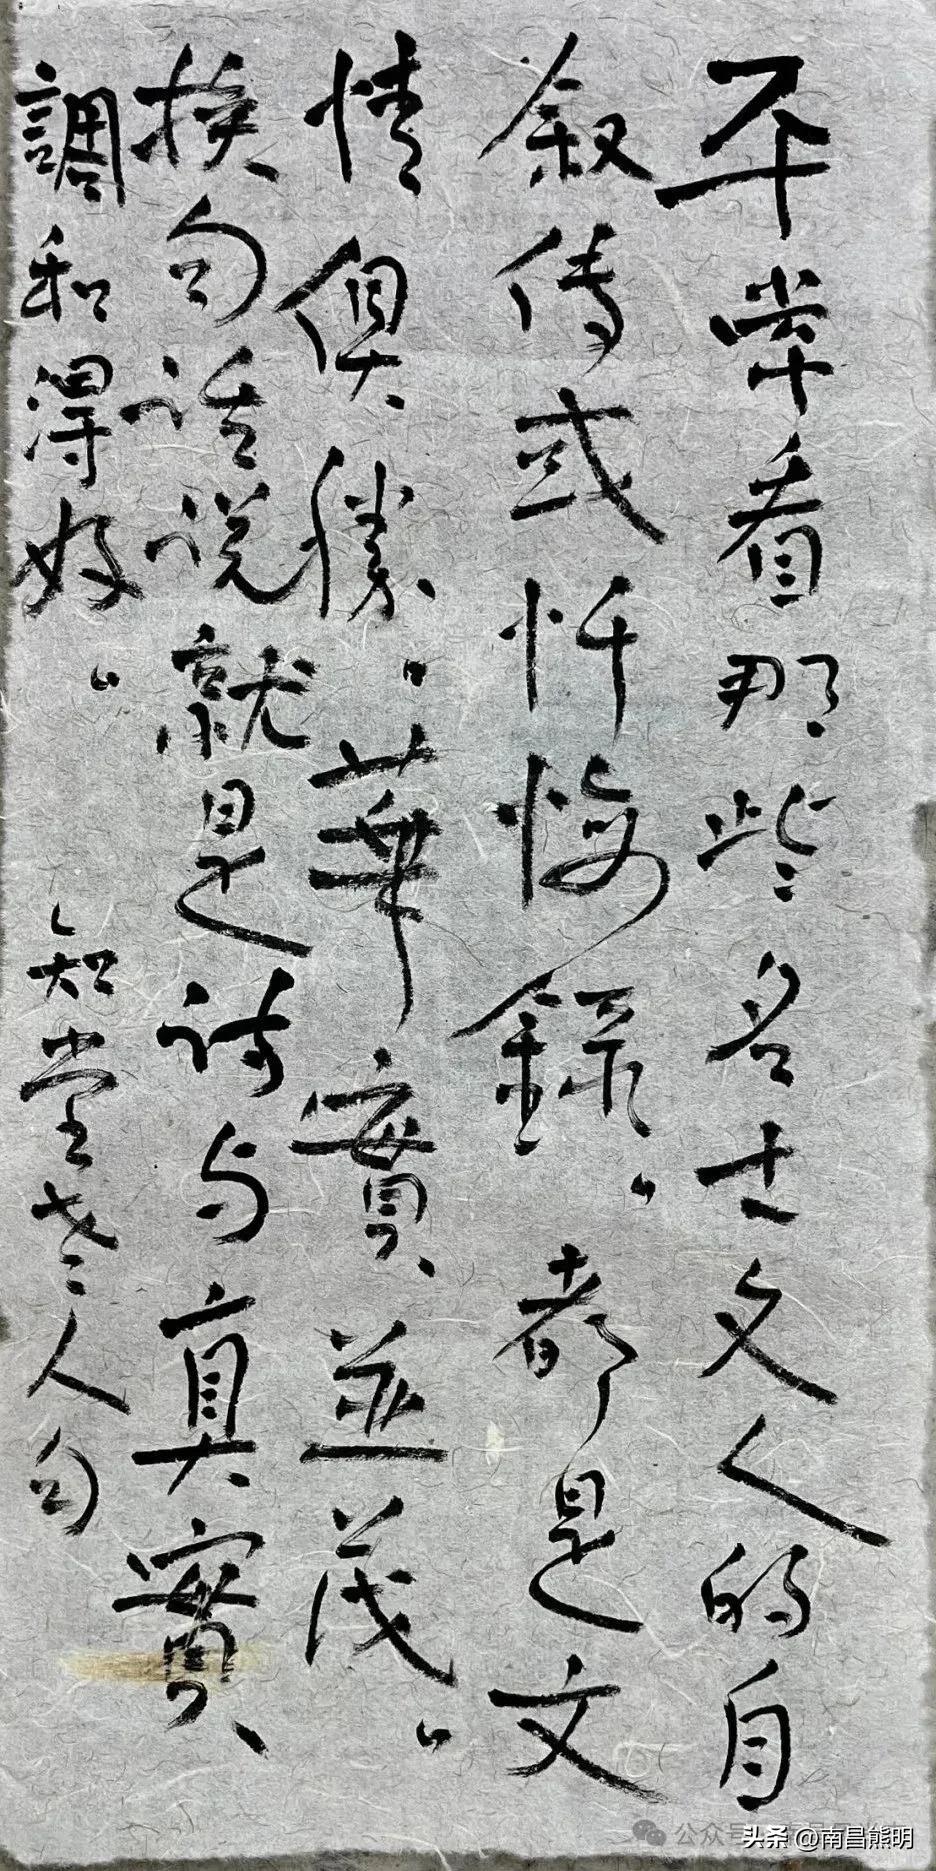 平常看那些名士文人的自
叙传或忏悔録，都是文
情俱勝，華實並茂，
换句话说就是诗与真實
調和得好，
知堂老人句
公众号
头条 @南昌熊明